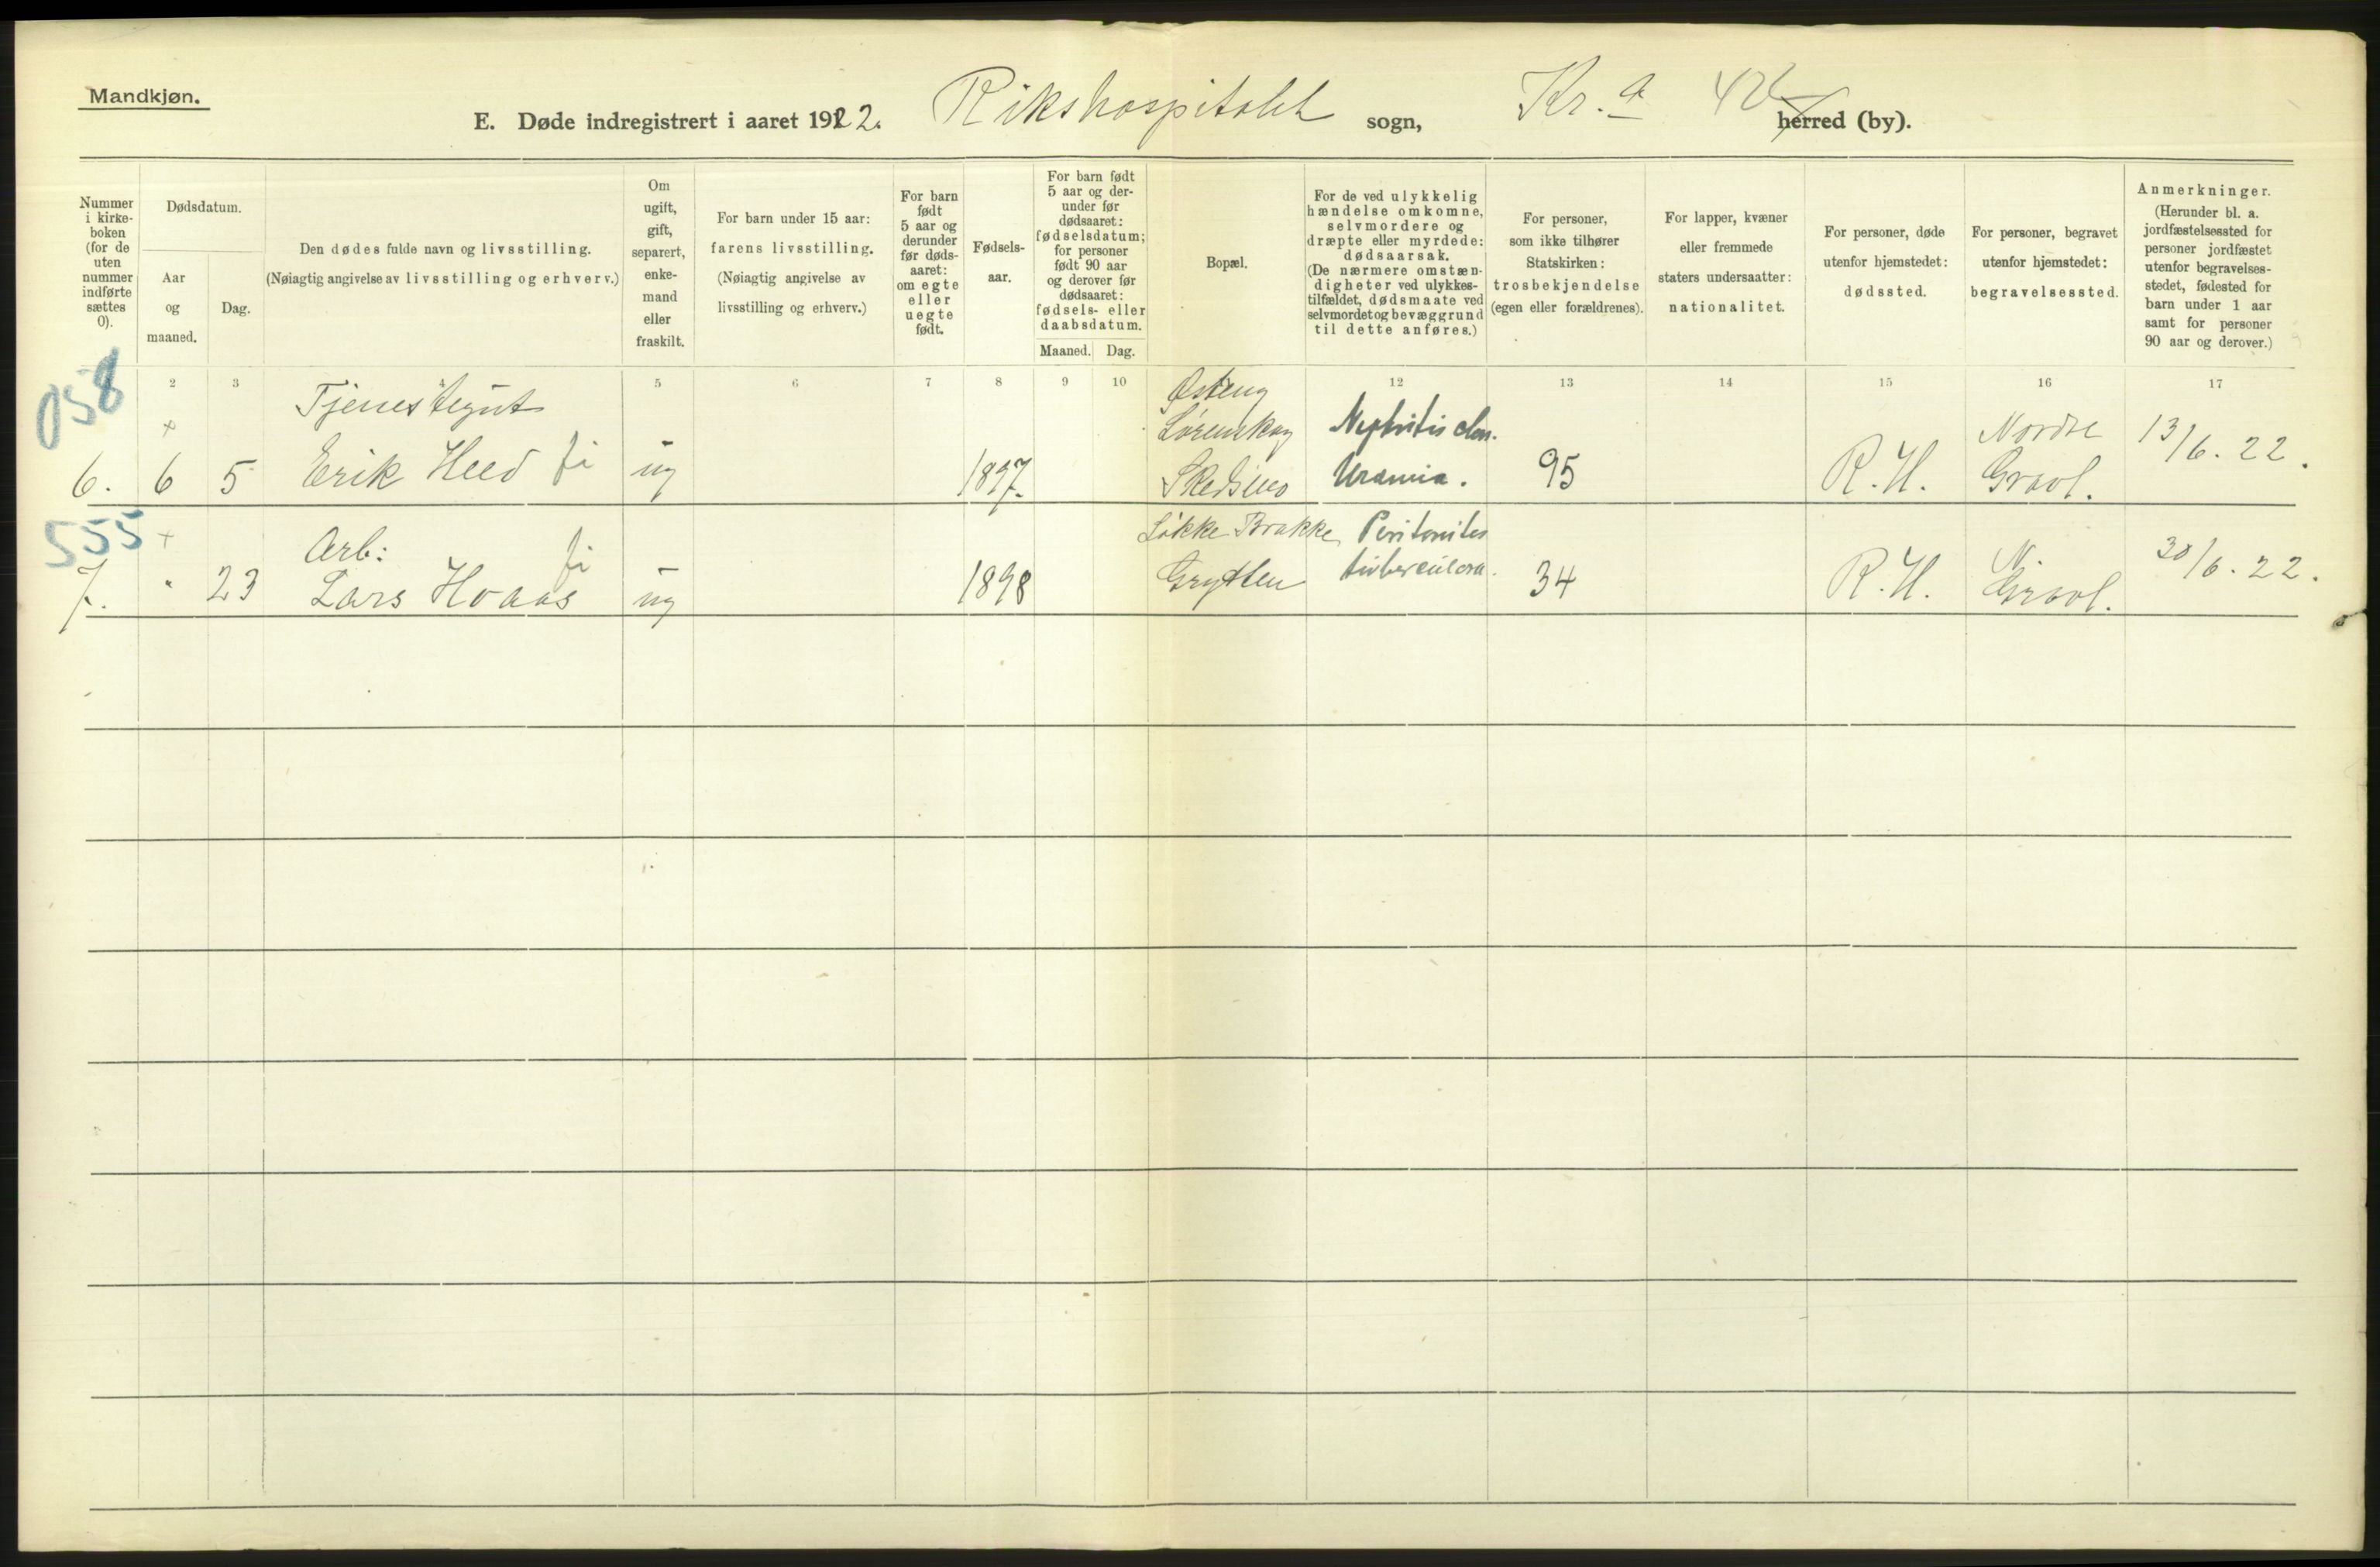 Mandkjøn.
E. Døde indregistrert i aaret 1922. Rikshospitalet sogn, Kr.a 426 herred (by).
Nummer i kirke-boken (for de uten nummer indførte sættes 0).
Dødsdatum.
Aar og maaned.
Dag.
Den dødes fulde navn og livsstilling.
(Nøiagtig angivelse av livsstilling og erhverv.)
Om ugift, gift, separert, enke-mand eller fraskilt.
For barn under 15 aar:
farens livsstilling.
(Nøiagtig angivelse av livsstilling og erhverv.)
For barn født 5 aar og derunder før døds-aaret: om egte eller uegte født.
Fødsels-aar.
For barn født 5 aar og der-under før dødsaaret: fødselsdatum; for personer født 90 aar og derover før dødsaaret: fødsels- eller daabsdatum.
Maaned. Dag.
Bopæl.
For de ved ulykkelig hændelse omkomne, selvmordere og dræpte eller myrdede: dødsaarsak.
(De nærmere omstæn-digheter ved ulykkes-tilfældet, dødsmaate ved selvmordet og bevæggrund til dette anføres.)
For personer, som ikke tilhører Statskirken: trosbekjendelse (egen eller forældrenes).
For lapper, kvæner eller fremmede staters undersaatter: nationalitet.
For personer, døde utenfor hjemstedet: dødssted.
For personer, begravet utenfor hjemstedet: begravelsessted.
Anmerkninger.
(Herunder bl. a. jordfæstelsessted for personer jordfæstet utenfor begravelses-stedet, fødested for barn under 1 aar samt for personer 90 aar og derover.)
2 3 4 5 6 7 8 9 10 12 13 14 15 16 17
058
Tjenestegut Østeng
+ Lørenskog Nephritis chr. Nordre 13/6.22.
6. 6 5 Erik Heed fi ug 1897. Skedsmo Uræmia. 95 R.H. Gravl.
555 + Arb: fi Løkke Brakke, Peritonites N.
7. " 23 Lars Hoaas ug 1898 Grytten tuberculosa. 34 R.H. Gravl. 30/6.22.